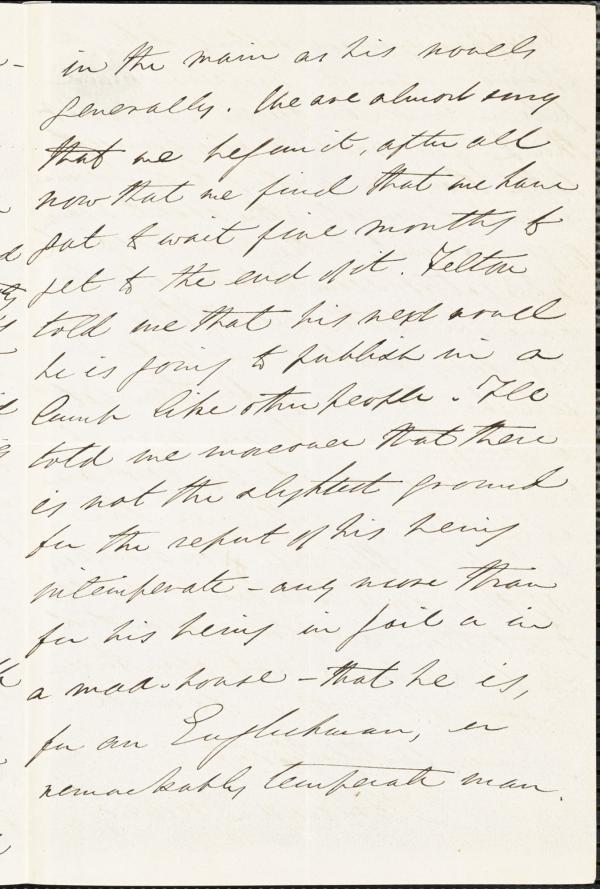 in the main as his novels
generally. We are almost sorry
that we begun it, after all
now that we find that we have
got to wait five months to
get to the end of it. Felton
told me that his next novel
he is going to publish in a
lump like other people. He
told me moreover that there
is not the slightest ground
for the report of his being
intemperate - any more than
for his being in jail or in
a mad-house - that he is,
for an Englishman, a
remarkably temperate man.